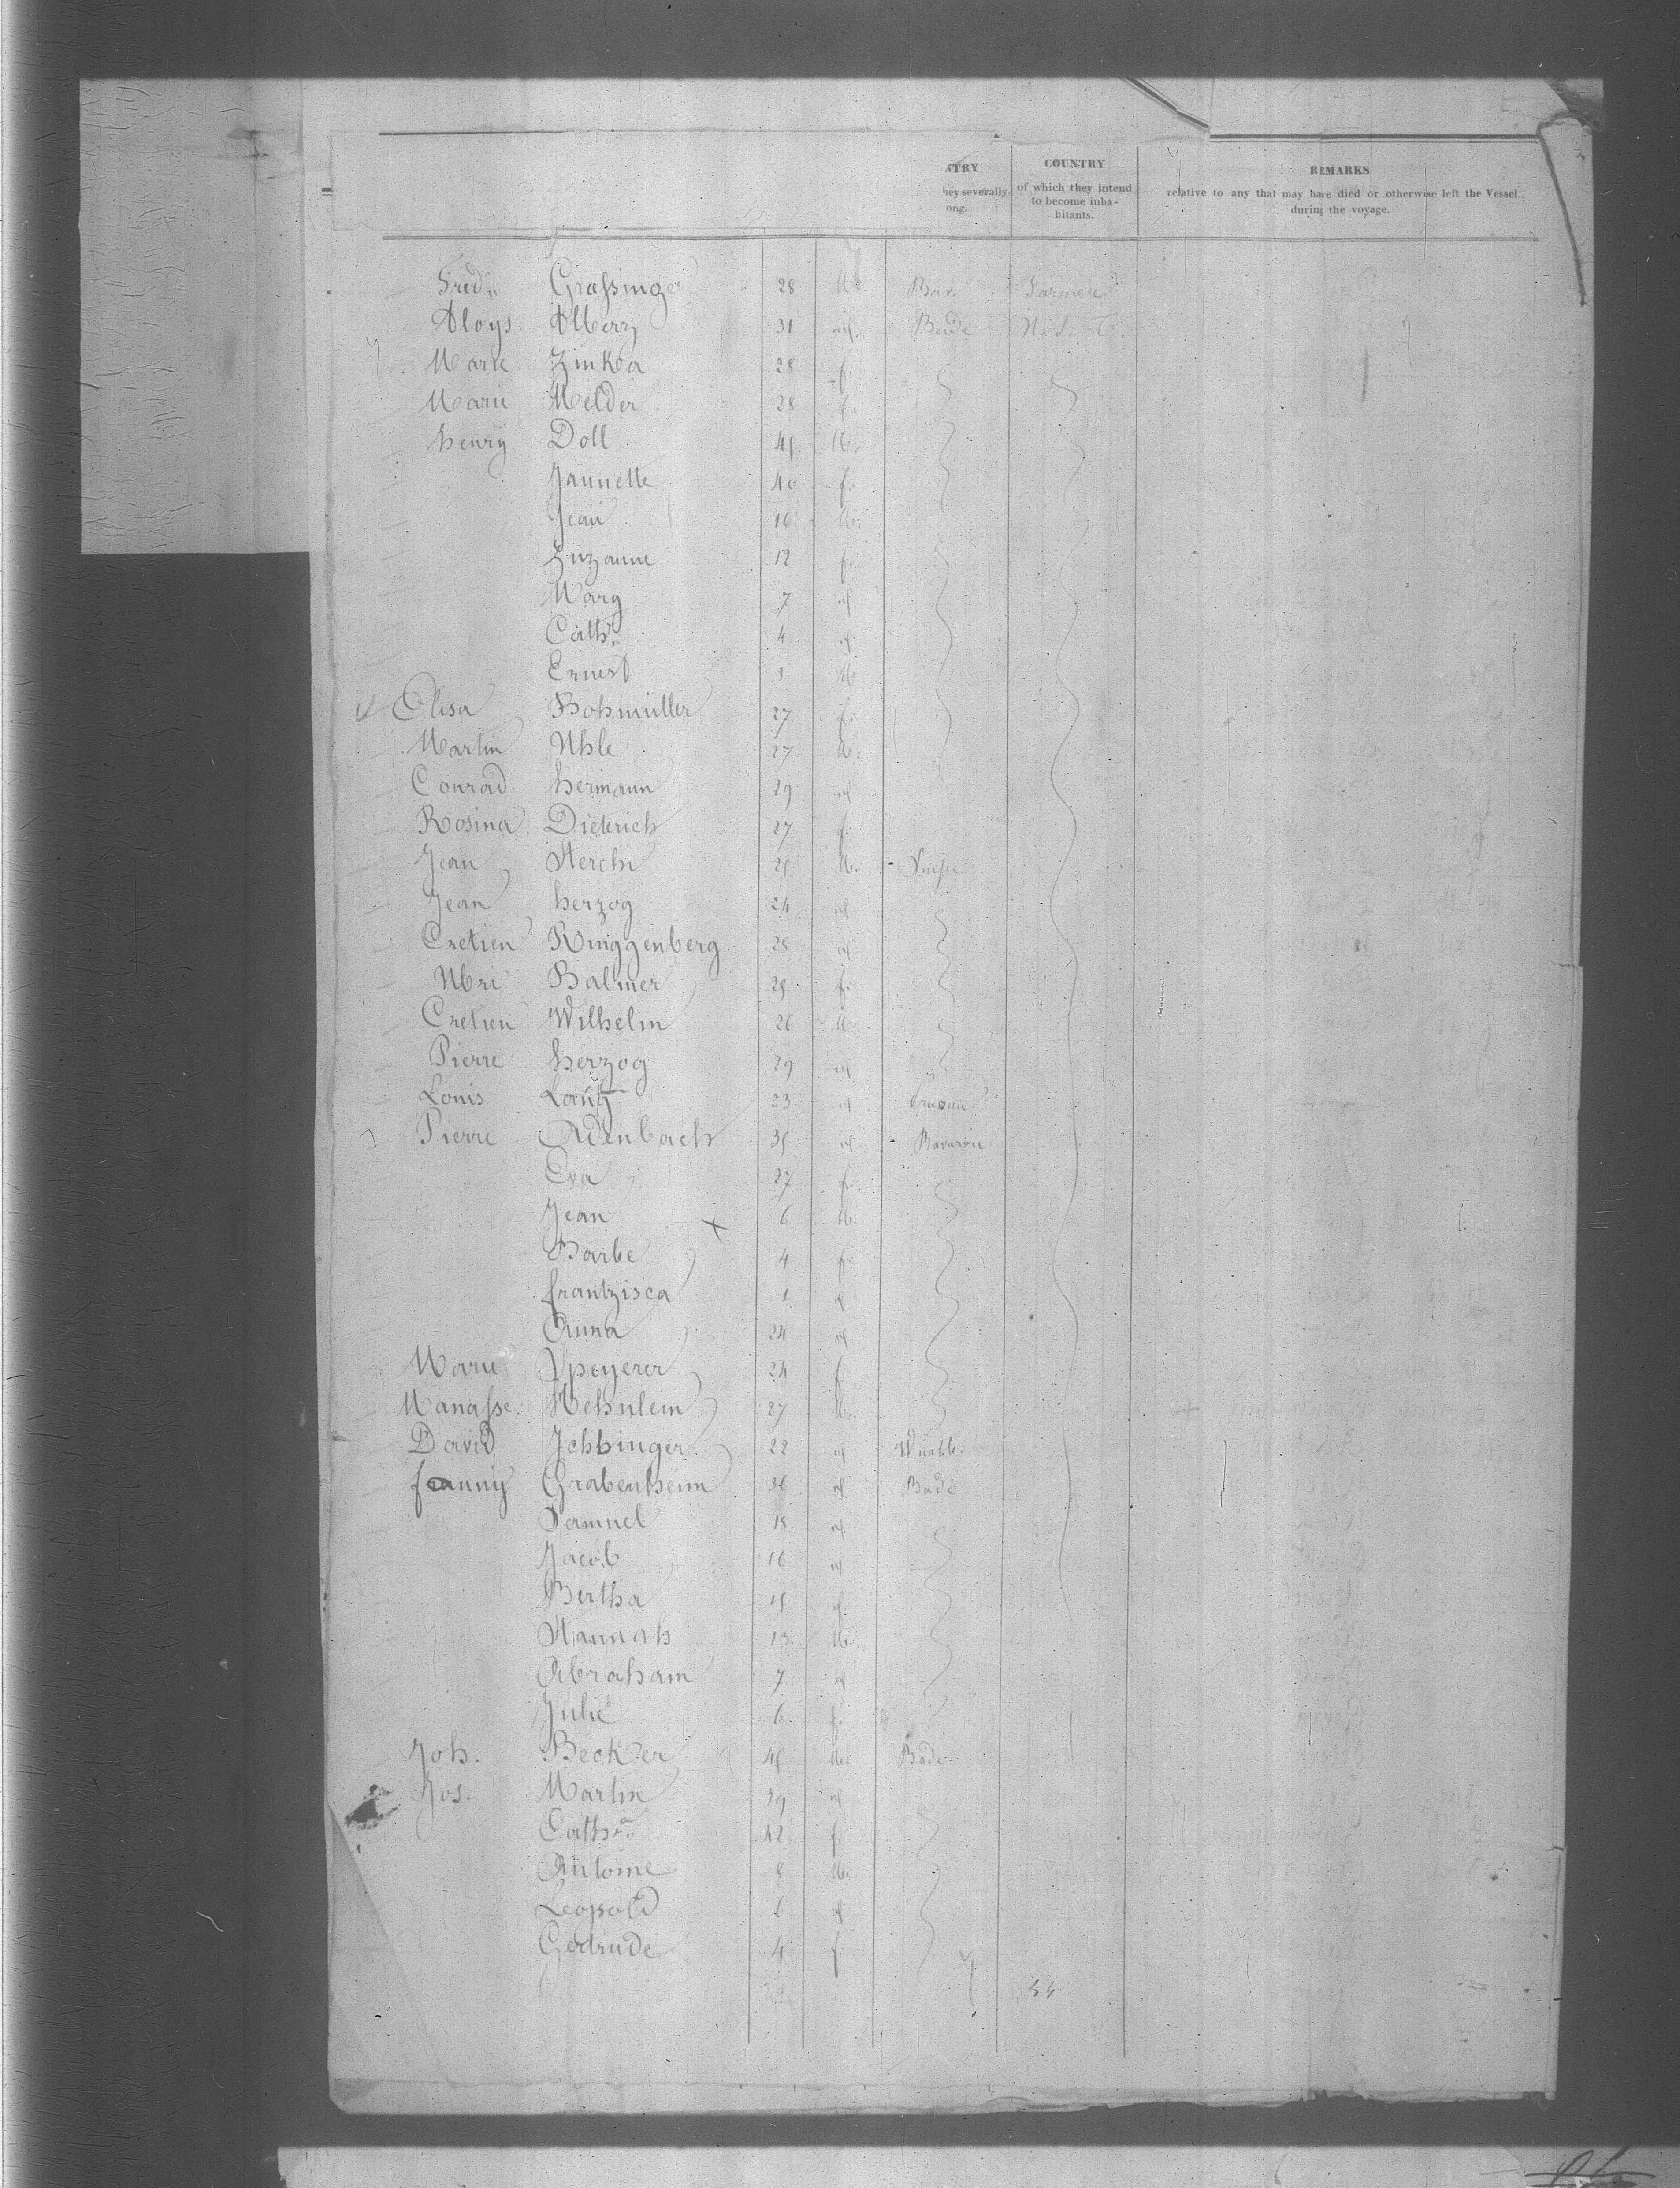 TRY
hey severally
ong.
COUNTRY
of which they intend
to become inha-
bitants.
REMARKS
relative to any that may have died or otherwise left the Vessel
during the voyage.
Fred. Grassinger 28 M. Bav. Farmer
Aloys 31 Bade
Marie 28 f.
Marie Melder 28 f.
henry Doll 45 M.
Jannette 40 f.
Jean 16 M.
Suzanne 12 f.
Marg 7
Cath. 4
Ernest M.
Elisa Bohmuller 27 f.
Martin Uhle 27 M.
Conrad hermann 29
Rosina Dieterich 27 f.
Jean Sterchi 25 M.
Jean herzog 24
Cretien Ringgenberg 28
Balmer 25 f.
Cretien Wilhelm 26 M.
Pierre herzog 29
Louis Lang 23
Pierre Odenbach 35 Bavaria
Eva 27 f.
Jean 6 M.
Barbe 4 f.
frantzisca 1
Anna 24
Marie Speyerer 24 f
Manasse 27 M.
David 22
fanny Grabenheim 36 Bade
Samuel 18
Jacob 16
Bertha 15 f.
Hannah 13 M.
Abraham 7
Julie 6 f.
Joh. Becker 45 M. Bade
Jos. Martin 39
Cath. 42 f
Antoine 8 M.
Leopold 6
Gertrude 4 f.
44